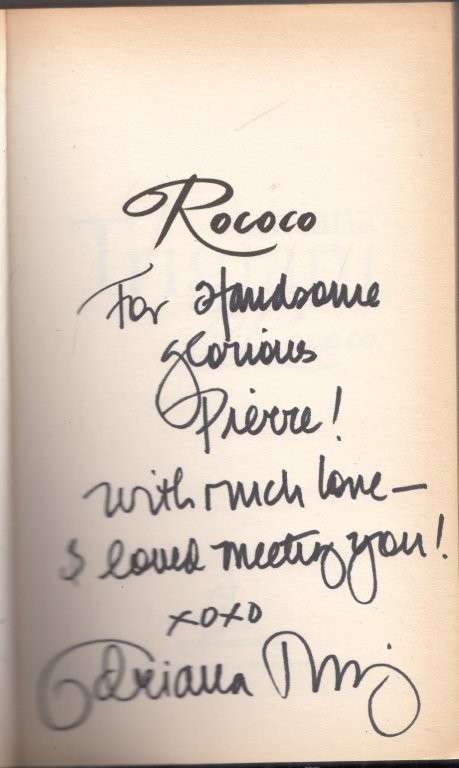 Rococo
For Handsome
glorious
Pierre!
with much love—
I loved meeting you!
xoxo
Adriana